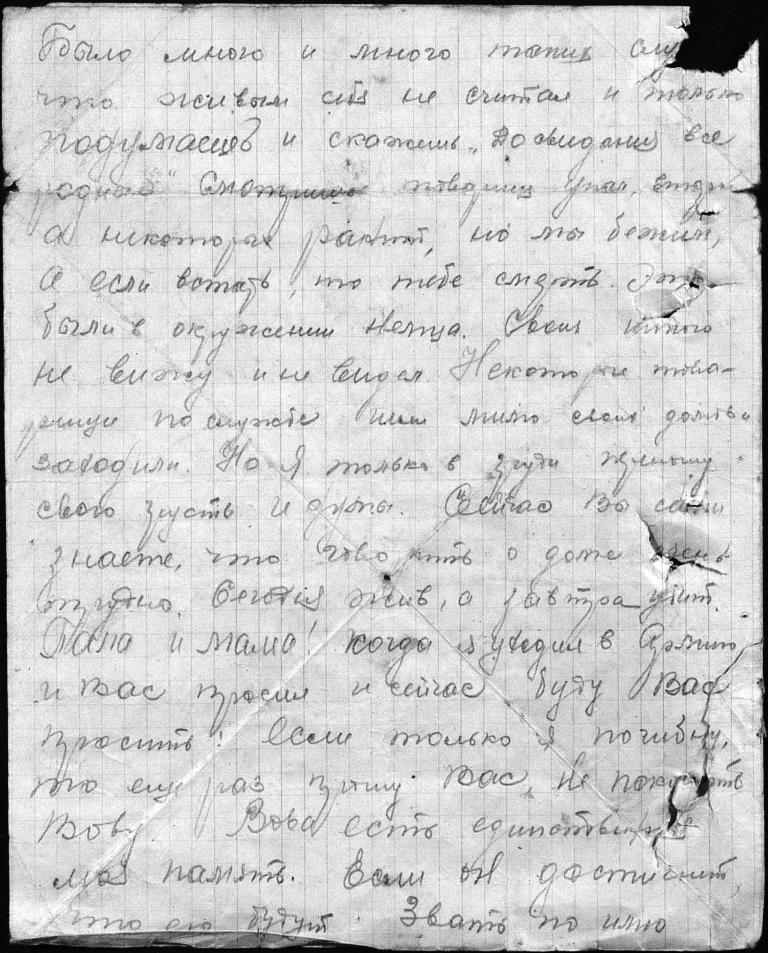 Было много и много таких
что живым себя не считал и только
подумаешь и скажешь „Досвидания все
родные" Смотришь товарищ упал, второй
а некоторые ранит, но мы бежим,
А если встать, то тебе смерть.
были в окружении немца. Своих никого
не вижу и не видел. Некоторые това-
рищи по службе шли мимо своего дома и
заходили. Но я только в груди
свою грусть и думы. Сейчас Вы сами
знаете, что говорить о доме очень
трудно. Сегодня жив, а завтра убит.
Папа и мама! Когда я уходил в Армию
и Вас просил и сейчас буду Вас
просить! Если только я погибну,
то еще раз прошу Вас, не покидать
Вову. Вова есть единственная
моя память. Если он достигнит,
что его будут Звать по имю